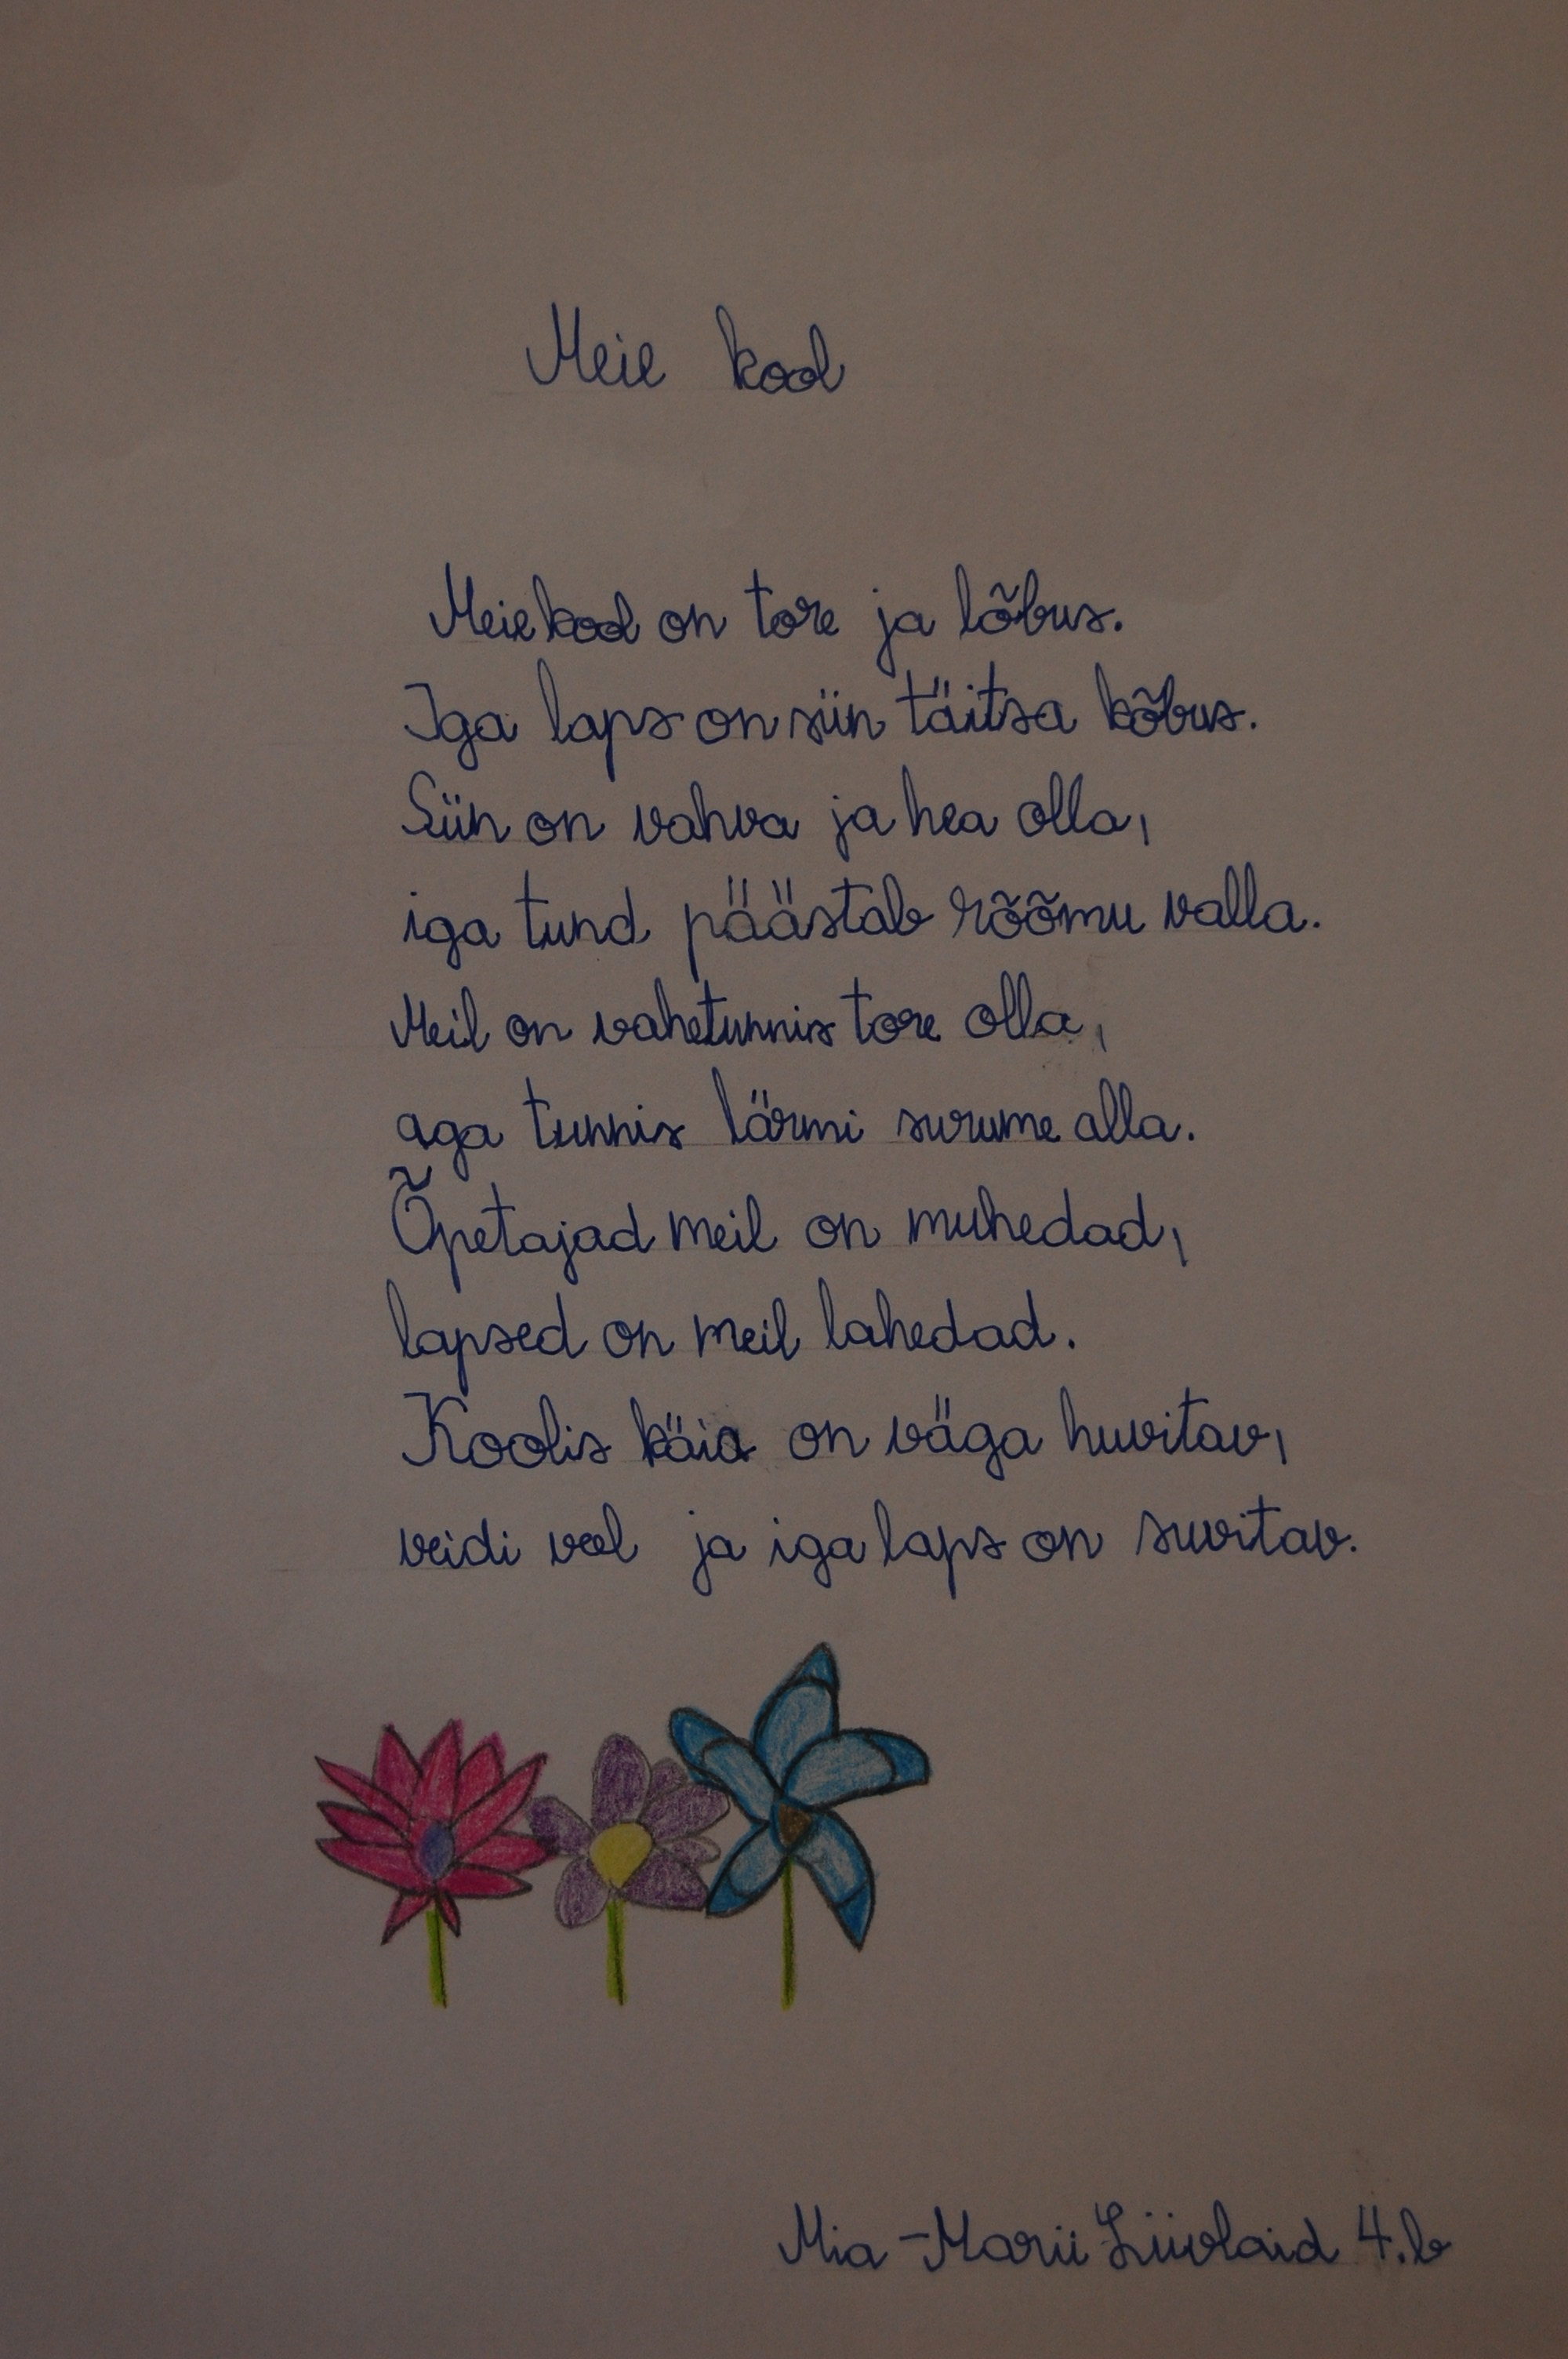 Meie kool
Meie kool on tore ja lõbus.
Iga laps on siin täitsa kõbus.
Siin on vahva ja hea olla,
iga tund päästab rõõmu valla.
Meil on vahetunnis tore olla,
aga tunnis lärmi surume alla.
Õpetajad meil on muhedad,
lapsed on meil lahedad.
Koolis käia on väga huvitav,
veidi veel ja iga laps on suvitav.
Mia-Marii Liivlaid 4.b